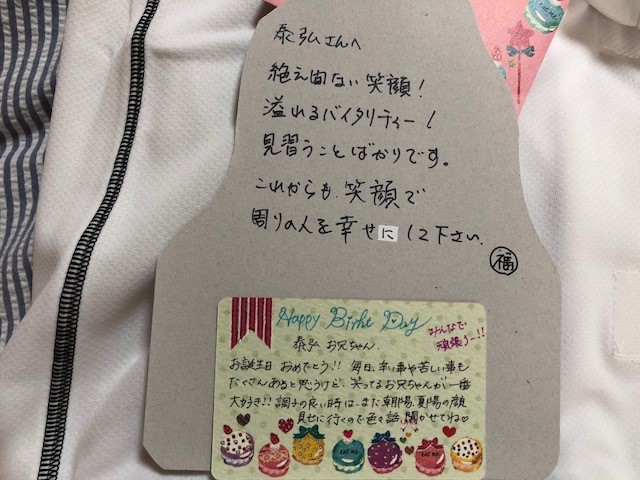 泰弘さんへ
絶え間ない笑顔!
溢れるバイタリティー!
見習うことばかりです。
これからも、笑顔で
周りの人を幸せにして下さい。
福
Happy Birht Day
みんなで
頑張ろー!!
泰弘 お兄ちゃん
お誕生日 おめでとう!! 毎日、辛い事や苦しい事も
たくさんあると思うけど、笑ってるお兄ちゃんが一番
大好き!! 調子の良い時は、また朝陽、夏陽の顔
見せに行くので色々話、聞かせてね♡
eat me
eat me
eat me